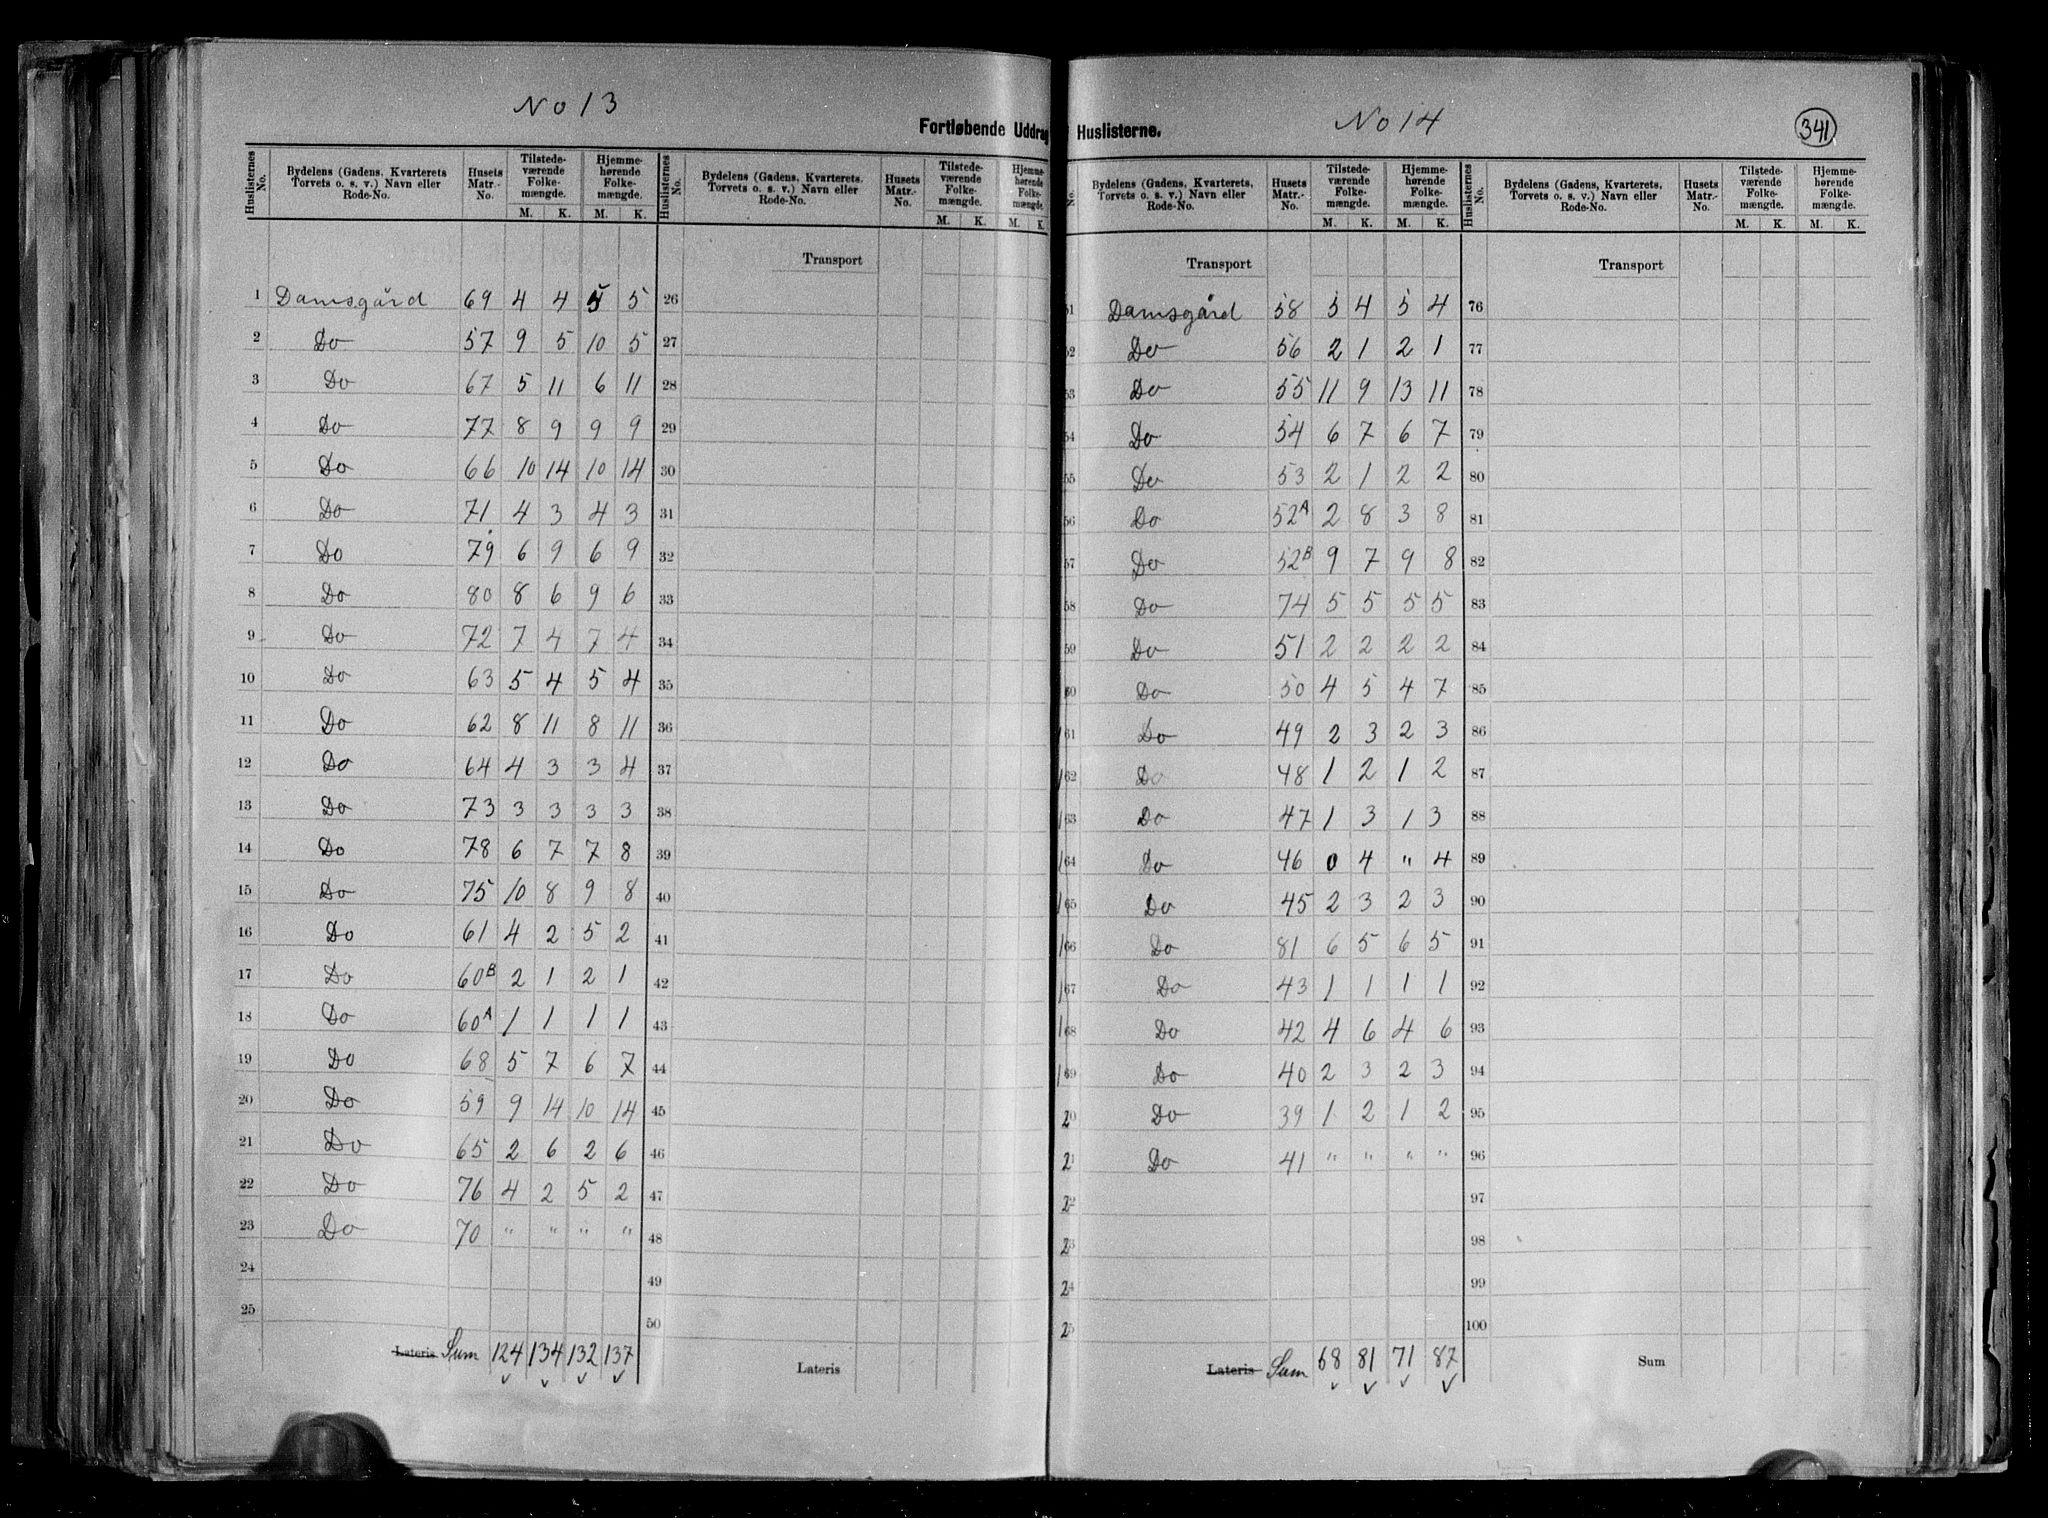 No 13
No 14
341
Fortløbende Uddrag
Huslisterne.
Huslisternes No.
Bydelens (Gadens, Kvarterets Torvets o. s. v.) Navn eller Rode-No.
Husets Matr.-No.
Tilstede-værende Folke-mængde.
Hjemme-hørende Folke-mængde.
M. K. M. K.
Huslisternes No.
Bydelens (Gadens, Kvarterets, Torvets o. s. v.) Navn eller Rode-No.
Husets Matr.-No.
Tilstede-værende Folke-mængde.
Hjemme-hørende Folke-mængde.
M. K. M. K.
Transport
1 Damsgård 69 4 4 5 5 26
2 Do 57 9 5 10 5 27
3 Do 67 5 11 6 11 28
4 Do 77 8 9 9 9 29
5 Do 66 10 14 10 14 30
6 Do 71 4 3 4 3 31
7 Do 79 6 9 6 9 32
8 Do 80 8 6 9 6 33
9 Do 72 7 4 7 4 34
10 Do 63 5 4 5 4 35
11 Do 62 8 11 8 11 36
12 Do 64 4 3 3 4 37
13 Do 73 3 3 3 3 38
14 Do 78 6 7 7 8 39
15 Do 75 10 8 9 8 40
16 Do 61 4 2 5 2 41
17 Do 60B 2 1 2 1 42
18 Do 60A 1 1 1 1 43
19 Do 68 5 7 6 7 44
20 Do 59 9 14 10 14 45
21 Do 65 2 6 2 6 46
22 Do 76 4 2 5 2 47
23 Do 70 " " " " 48
24 49
25 50
Lateris Sum 124 134 132 137
Lateris
No.
Bydelens (Gadens, Kvarterets, Torvets o. s. v.) Navn eller Rode-No.
Husets Matr.-No.
Tilstede-værende Folke-mængde.
Hjemme-hørende Folke-mængde.
M. K. M. K.
Huslisternes No.
Bydelens (Gadens, Kvarterets, Torvets o. s. v.) Navn eller Rode-No.
Husets Matr.-No.
Tilstede-værende Folke-mængde.
Hjemme-hørende Folke-mængde.
M. K. M. K.
Transport
Transport
51 Damsgård 58 5 4 5 4 76
52 Do 56 2 1 2 1 77
53 Do 55 11 9 13 11 78
54 Do 54 6 7 6 7 79
55 Do 53 2 1 2 2 80
56 Do 52A 2 8 3 8 81
57 Do 52B 9 7 9 8 82
58 Do 74 5 5 5 5 83
59 Do 51 2 2 2 2 84
60 Do 50 4 5 4 7 85
61 Do 49 2 3 2 3 86
62 Do 48 1 2 1 2 87
63 Do 47 1 3 1 3 88
64 Do 46 0 4 " 4 89
65 Do 45 2 3 2 3 90
66 Do 81 6 5 6 5 91
67 Do 43 1 1 1 1 92
68 Do 42 4 6 4 6 93
69 Do 40 2 3 2 3 94
20 Do 39 1 2 1 2 95
21 Do 41 " " " " 96
22 97
23 98
24 99
25 100
Lateris Sum 68 81 71 87
Sum